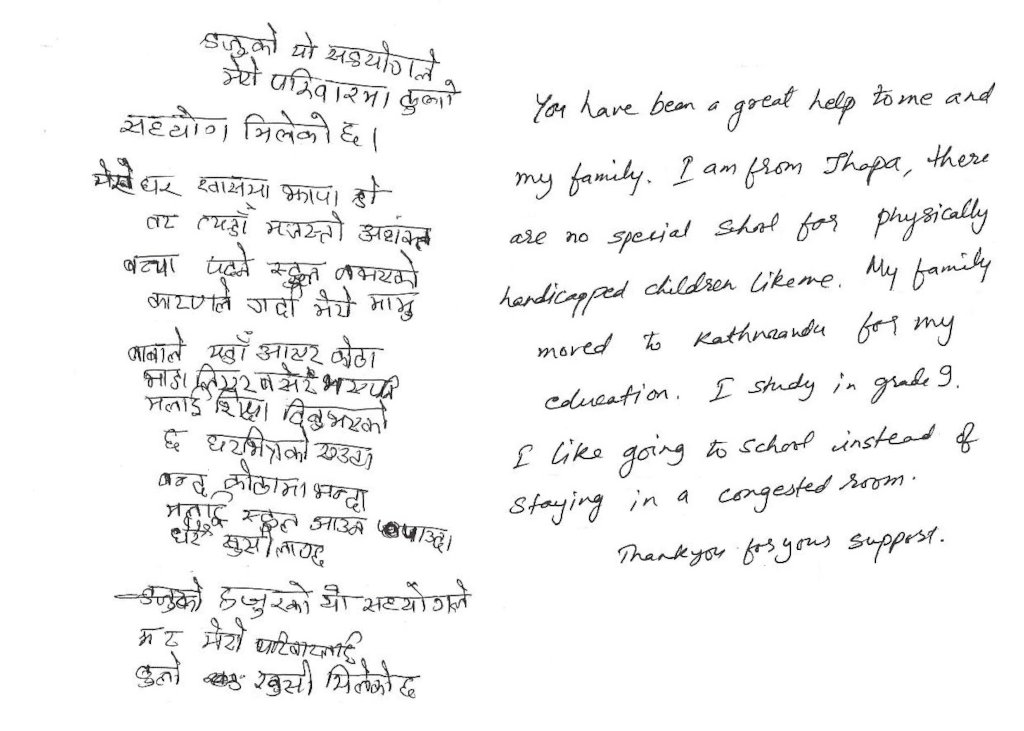 हजुको यो सहयोगले
मेरो परिवारमा ठुलो
सहयोग मिलेको छ।
घर खासमा झापा हो
तर त्यहाँ मजस्तो अशक्त
बच्चा पढ्ने स्कूल नभएको
कारणले गर्दा मेरो मामु
बाबाले यहाँ आएर कोठा
भाडा लिएर बसेर भएपनि
मलाई शिक्षा दिनुभएको
छ घरभित्रको एउटा
बन्द कोठामा भन्दा
मलाई स्कूल आउन पाउदा
धेरै खुसी लाग्छ
हजुरको यो सहयोगले
म र मेरो परिवारलाई
ठुलो खुसी मिलेको छ
You have been a great help to me and
my family. I am from Jhapa, there
are no special school for physically
handicapped children like me. My family
moved to Kathmandu for my
education. I study in grade 9.
I like going to school instead of
staying in a congested room.
Thankyou for your support.